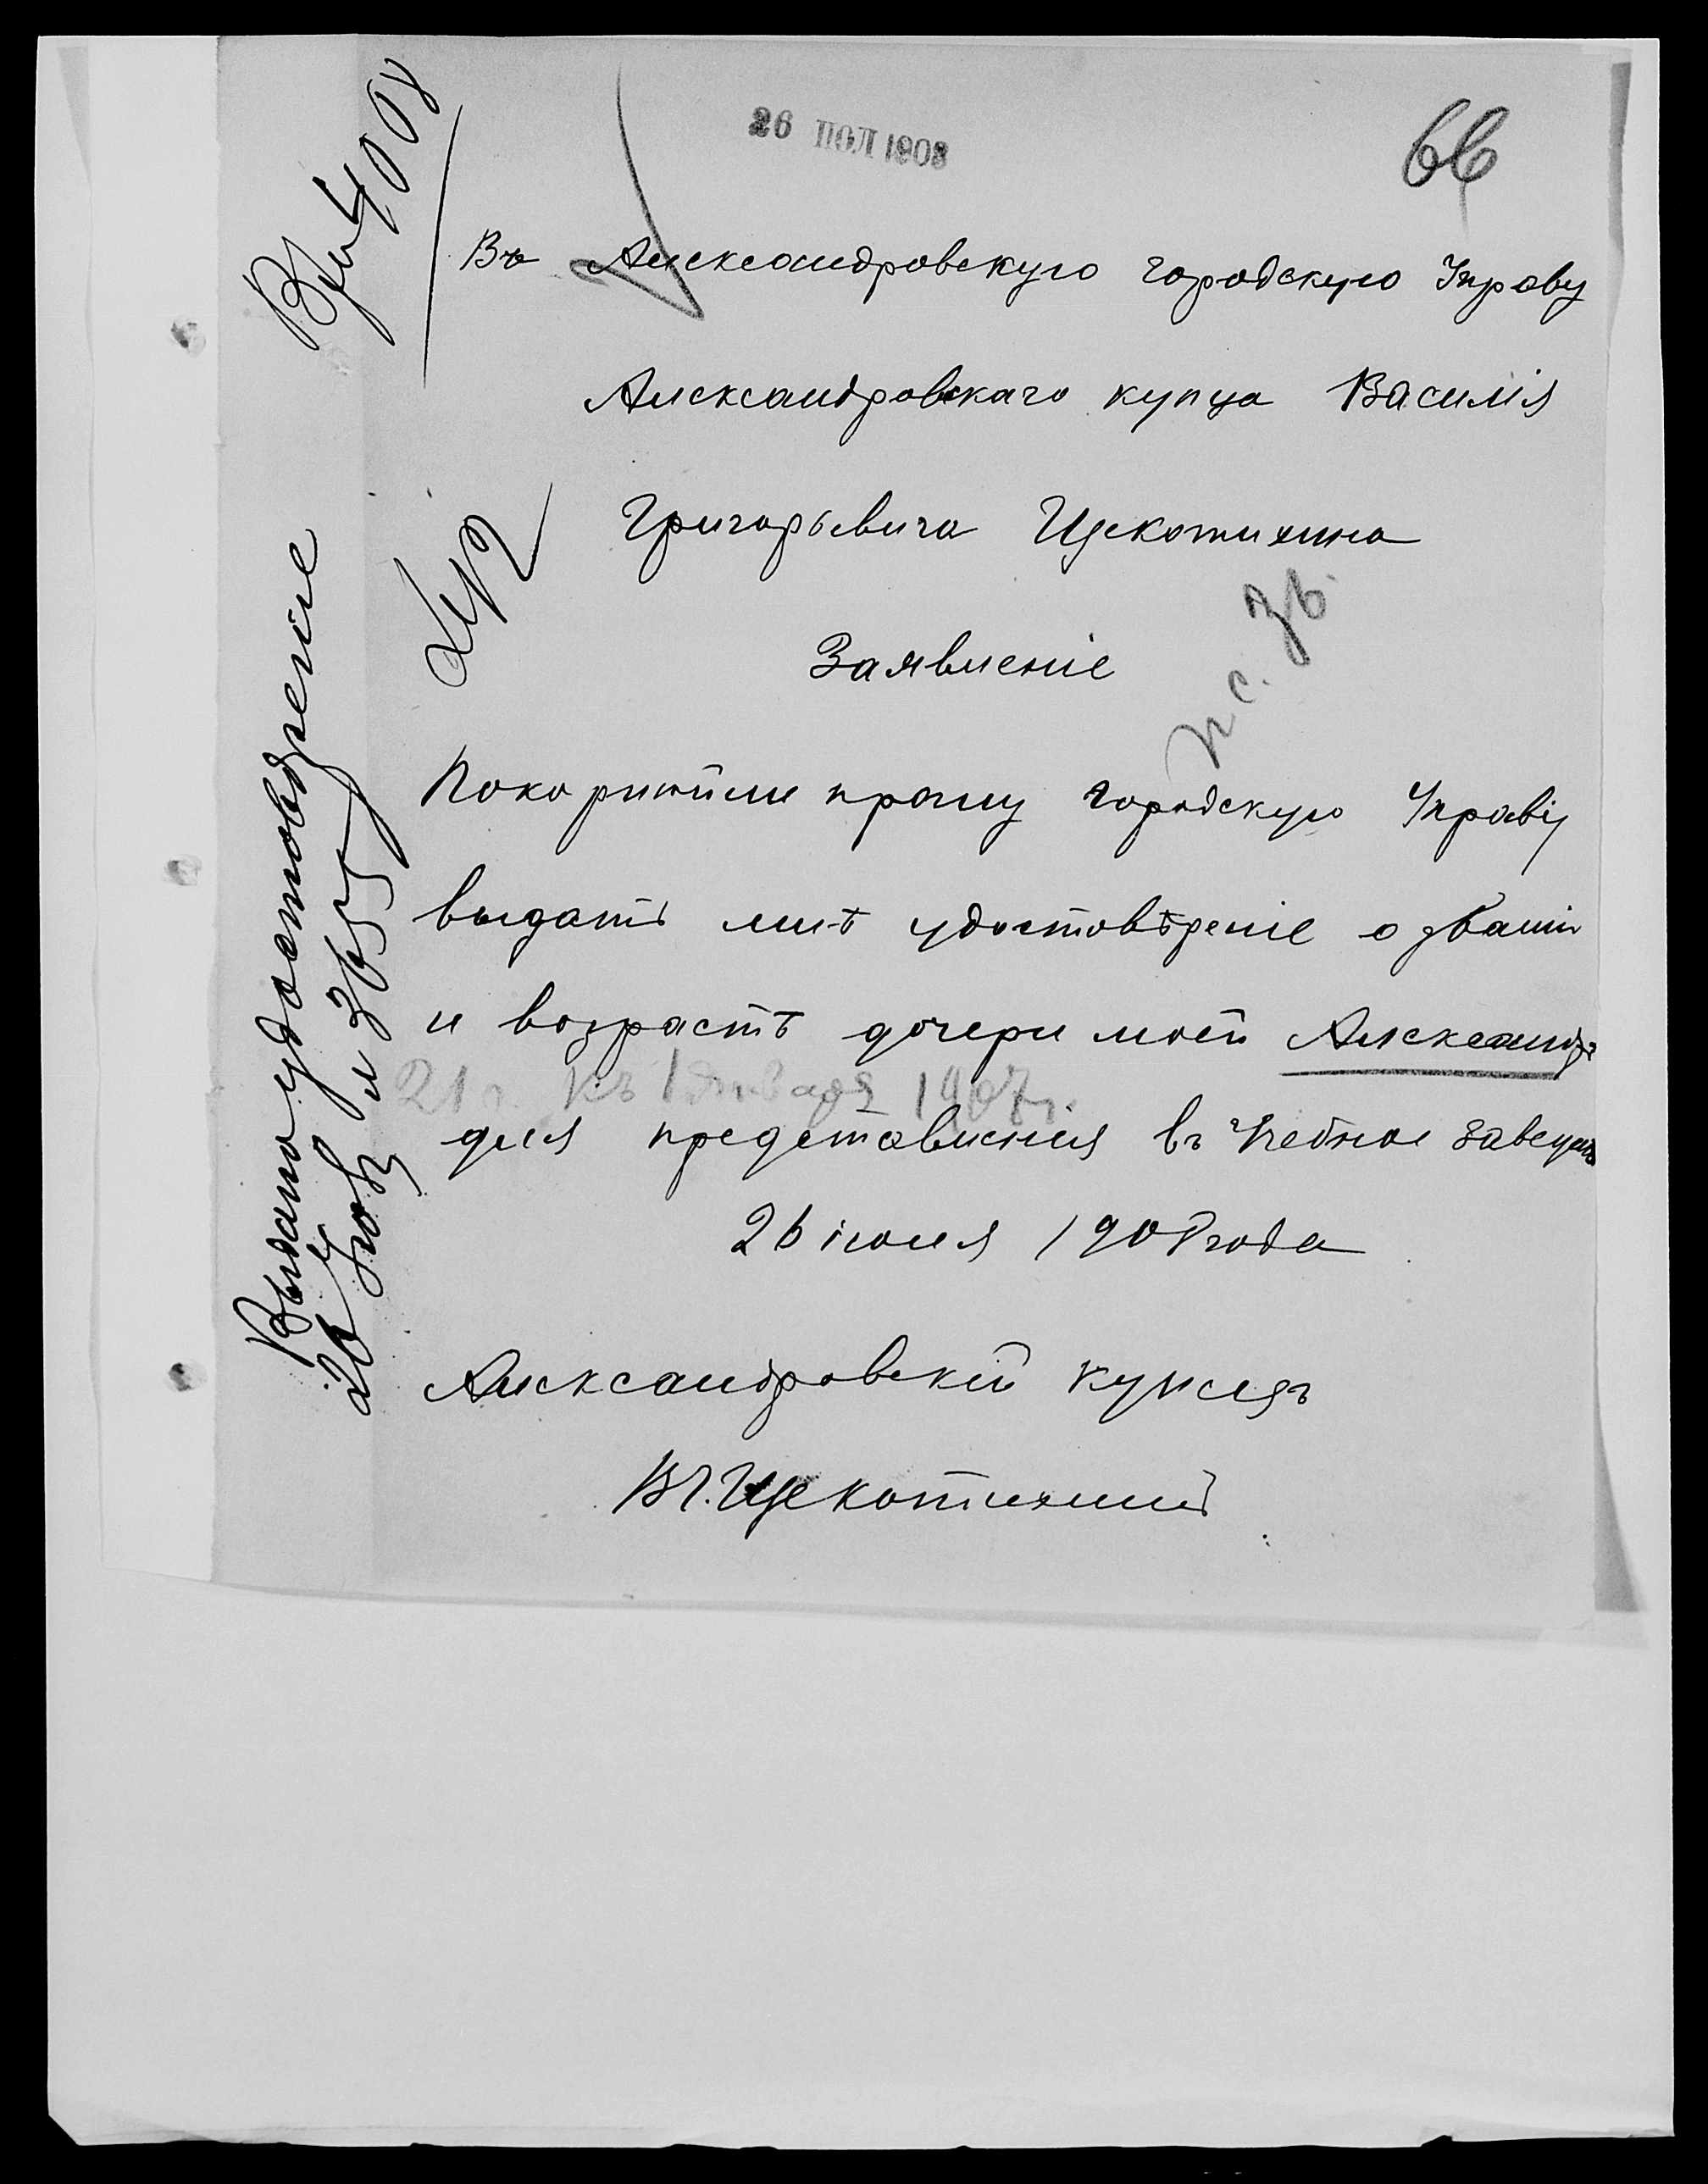 26 ІЮЛ 1908
66
Въ Александровскую городскую Управу
Александровскаго купца Василія
Григорьевича Щекотихина
Заявленіе
Покорнѣйше прошу городскую Управу
выдать мнѣ удостовѣреніе о званіи
и возрастѣ дочери моей Александры
21 г. къ 1 января 1907 г.
для представленія въ учебное заведеніе
26 іюля 1908 года
Александровскій купецъ
В. Г. Щекотихинъ
Выдано удостовѣреніе
26 Іюля